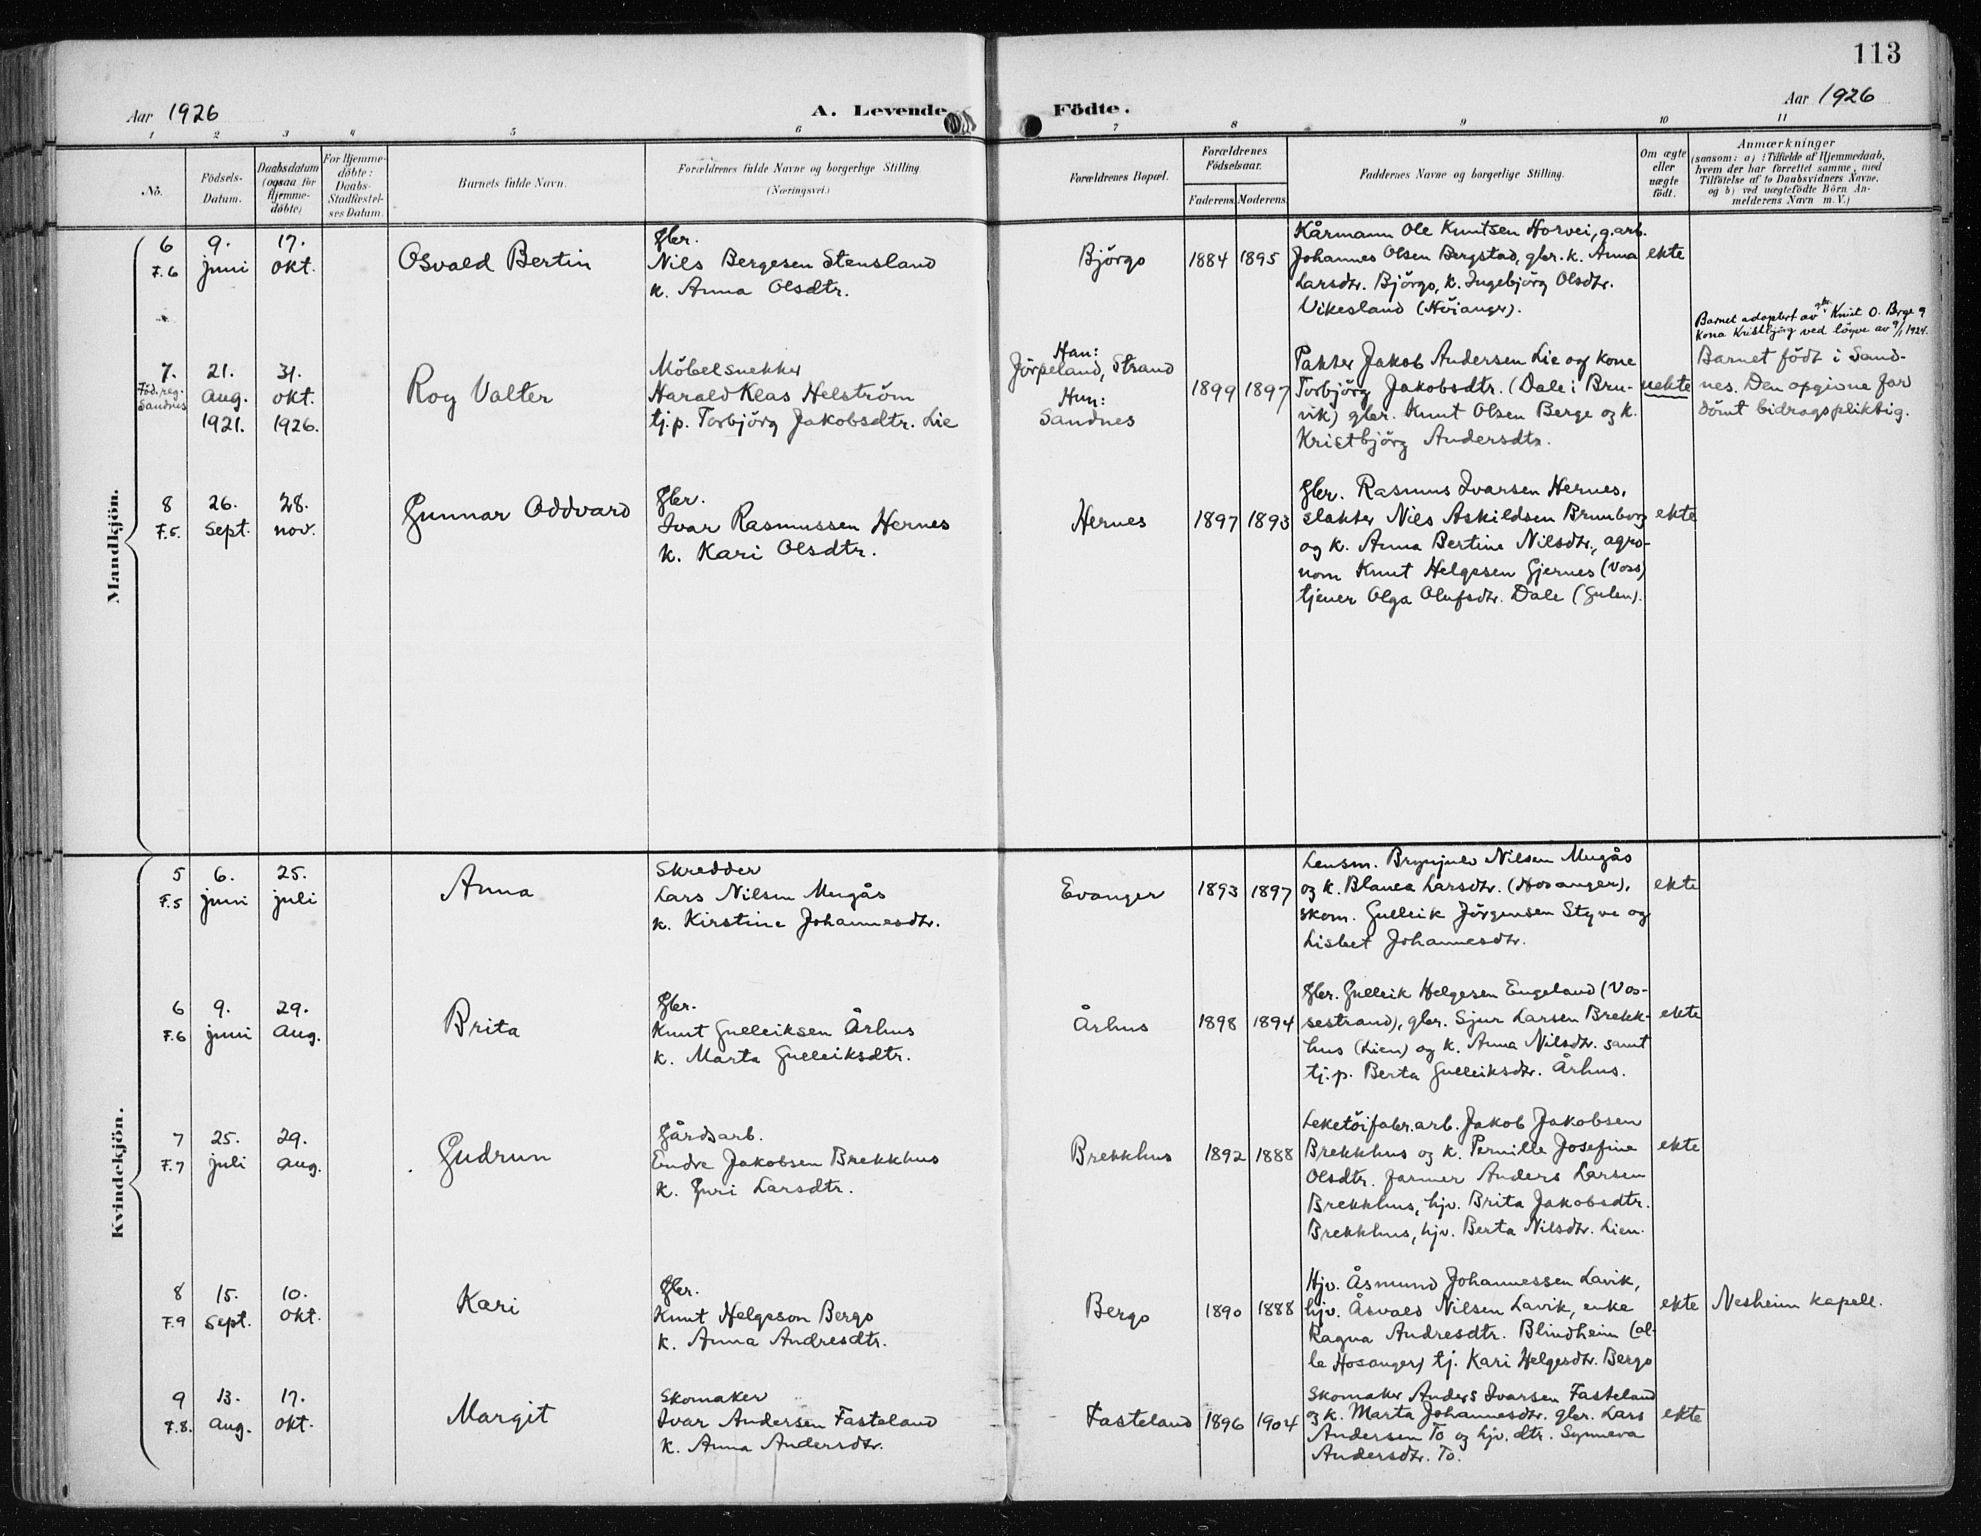 113
Aar 1926
A. Levende Födte.
Aar 1926
1 2 3 4 5 6 7 8 9 10 11
No.
Födsels-Datum.
Daabsdatum (ogsaa for Hjemme-döbte)
For Hjemme-döbte: Daabs-Stadfæstel-ses Datum.
Barnets fulde Navn.
Forældrenes fulde Navne og borgerlige Stilling (Næringsvei.)
Forældrenes Bopæl.
Forældrenes Födselsaar.
Faderens. Moderens.
Faddernes Navne og borgerlige Stilling.
Om ægte eller uægte födt.
Anmærkninger
(saasom: a) i Tilfælde af Hjemmedaab,
hvem der har forrettet samme, med
Tilföielse af to Daabsvidners Navne,
og b) ved uægtefödte Börn An-
melderens Navn m. V.)
Mandkjön.
6
F.6
9.
juni
17.
okt.
Osvald Bertin
Gbr.
Nils Bergesen Stensland
k. Anna Olsdtr.
Björgo
1884 1895
Kårmann Ole Knutsen Horvei, g.arb.
Johannes Olsen Bergstad, gbr. k. Anna
Larsdtr. Björgo, k. Ingebjörg Olsdtr.
Vikesland (Höianger).
ekte
7.
Föd.reg.
Sandnes
21.
aug.
1921.
31.
okt.
1926.
Roy Valter
Möbelsnekker
Harald Klas Helström
tj.p. Torbjörg Jakobsdtr. Lie
Han:
Jörpeland, Strand
Hun:
Sandnes
1899 1897
Pakter Jakob Andersen Lie og kone
Torbjörg Jakobsdtr. (Dale i Bru-
vik) gbr. Knut Olsen Berge og k.
Kristbjörg Andersdtr.
uekte
Barnet adoptert av gbr. Knut O. Berge og
kona Kristbjörg ved löyve av 9/1 1924.
Barnet födt i Sand-
nes. Den opgivne far
dömt bidragspliktig.
8
F.5.
26.
Sept.
28.
nov.
Gunnar Oddvard
Gbr.
Ivar Rasmussen Hernes
k. Kari Olsdtr.
Hernes
1897 1893
Gbr. Rasmus Ivarsen Hernes,
slakter Nils Askildsen Brunborg
og k. Anna Bertine Nilsdtr., agro-
nom Knut Helgesen Gjernes (Voss)
tjener Olga Olufsdtr. Dale (Gulen).
ekte
Kvindekjön.
5
F.5
6.
juni
25.
juli
Anna
Skredder
Lars Nilsen Mugås
k. Kirstine Johannesdtr.
Evanger
1893 1897
Lensm. Brynjulv Nilsen Mugås
og k. Blanca Larsdtr. (Hosanger),
skom. Gulleik Jörgensen Styve og
Lisbet Johannesdtr.
ekte
6
F.6
9.
juni
29.
aug.
Brita
Gbr.
Knut Gulleiksen Århus
k. Marta Gulleiksdtr.
Århus
1898 1894
Gbr. Gulleik Helgesen Engeland (Vos-
sestrand), gbr. Sjur Larsen Brekk-
hus (Lien) og k. Anna Nilsdtr. samt
tj.p. Berta Gulleiksdtr. Århus.
ekte
7
F.7
25.
juli
29.
aug.
Gudrun
Gårdsarb.
Endre Jakobsen Brekkhus
k. Guri Larsdtr.
Brekkhus
1892 1888
Leketöifabr.arb. Jakob Jakobsen
Brekkhus og k. Pernille Josefine
Olsdtr. farmer Anders Larsen
Brekkhus, hjv. Brita Jakobsdtr.
Brekkhus, hjv. Berta Nilsdtr. Lien.
ekte
8
F.9
15.
Sept.
10.
okt.
Kari
Gbr.
Knut Helgeson Bergo
k. Anna Andresdtr.
Bergo
1890 1888
Hjv. Åsmund Johannessen Lavik,
hjv. Åsvaes Nilsen Lavik, enke
Ragna Andresdtr. Blindheim (al-
le Hosanger) tj. Kari Helgesdtr. Bergo
ekte
Nesheim kapell.
9
F.8.
13.
aug.
17.
okt.
Margit
Skomaker
Ivar Andersen Fasteland
k. Anna Andersdtr.
Fasteland
1896 1904
Skomaker Anders Ivarsen Fasteland
og k. Marta Johannesdtr. gbr. Lars
Andersen To og hjv. dtr. Synneva
Andersdtr. To.
ekte